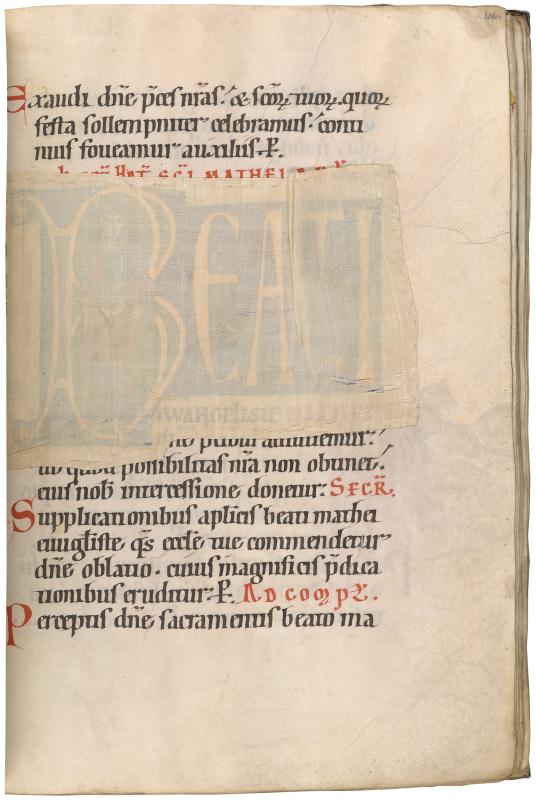 Exaudi dn̄e p̄ces nr̄as. & sc̄oꝝ tuoꝝ. quoꝝ
festa sollempniter celebramus. conti
nuis foueamur auxiliis. P̄.
SC̄I MATHEI
BEATI
ewangelisте
nobis intercessione donetur. SECR̄.
Supplicationibus apl̄icis beati mathei
euuigl̄iste qs̄ eccl̄e tue commendetur
dn̄e oblatio. cuius magnificis p̄dica
tionibus eruditur. P̄. AD COMPL̄.
Perceptis dn̄e sacramentis beato ma